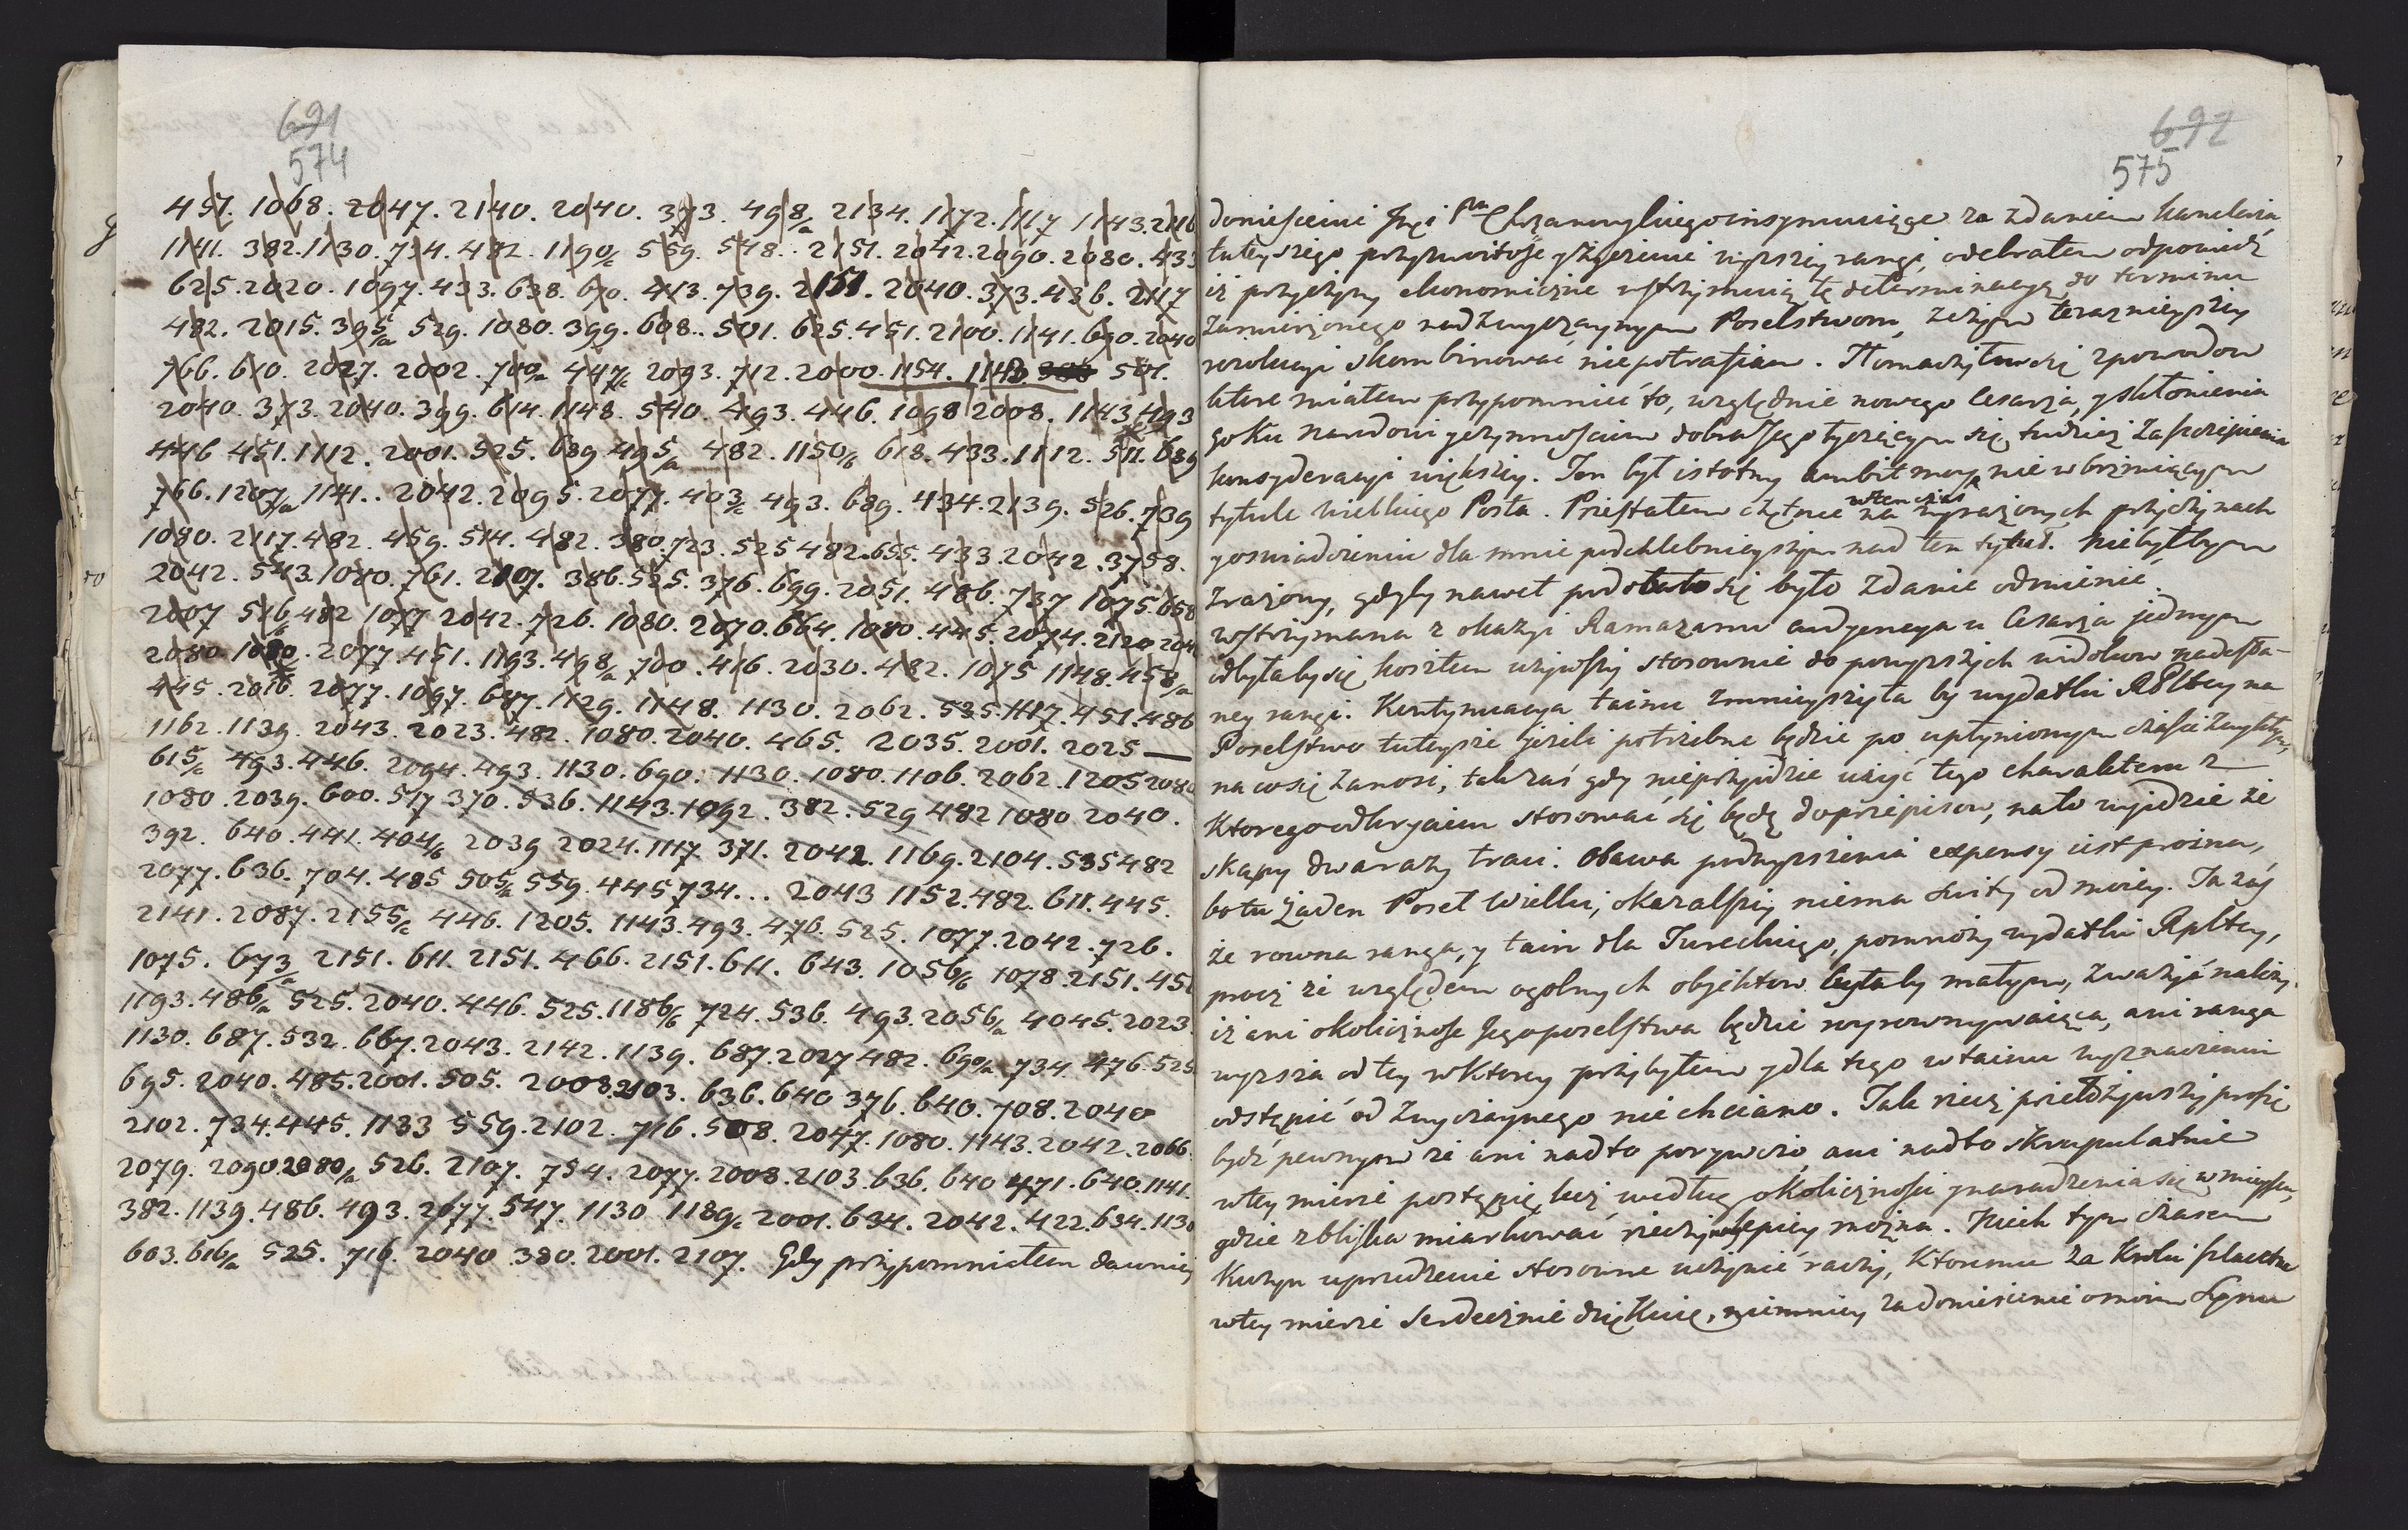 691
574
457. 1068. 2047. 2140. 2040. 373. 498/a 2134. 1172. 1117 1143. 2116
1141. 382. 1130. 734. 482. 1190/c 559. 548. 2151. 2042. 2090. 2080. 433
625. 2020. 1097. 433. 638. 610. 413. 739. 2151. 2040. 373. 436. 2117
482. 2015. 395/a 529. 1080. 399. 608. 501. 625. 451. 2100. 1141. 690. 2040
766. 610. 2027. 2002. 700/a 447/c 2093. 712. 2000. 1154. 1148 501.
2040. 373. 2040. 399. 614. 1148. 540. 493. 446. 1098 2008. 1143. 493
446 451. 1112. 2001. 525. 689 495/a 482. 1150/b 618. 433. 1112. 511. 689
766. 1207/a 1141. 2042. 2095. 2077. 403/c 493. 689. 434. 2139. 526. 739
1080. 2117. 482. 459. 514. 482. 380. 723. 525 482. 655. 433. 2042. 3758.
2042. 543. 1080. 761. 2107. 386. 525. 376. 699. 2051. 486. 737 1075. 658
2007 516/b 482 1077 2042. 726. 1080. 2070. 664. 1080. 445. 2074. 2120 204
2080. 1080. 2077. 451. 1193. 498/a 700. 416. 2030. 482. 1075 1148. 458/a
445. 2016. 2077. 1097. 687. 1129. 1148. 1130. 2062. 535. 1117. 451. 486
1162. 1139. 2043. 2023. 482. 1080. 2040. 465. 2035. 2001. 2025
615/c 493. 446. 2094. 493. 1130. 690. 1130. 1080. 1106. 2062. 1205 2080
1080. 2039. 600. 517 370. 536. 1143. 1092. 382. 529 482 1080 2040.
392. 640. 441. 404/b 2039 2024. 1117. 371. 2042. 1169. 2104. 535 482
2077. 636. 704. 485 505/a 559. 445 734... 2043 1152. 482. 611. 445.
2141. 2087. 2155/c 446. 1205. 1143. 493. 476. 525. 1077. 2042. 726.
1075. 673/a 2151. 611. 2151. 466. 2151. 611. 643. 1056/b 1078. 2151. 45
1193. 486/a 525. 2040. 446. 525. 1186/b 724. 536. 493. 2056/a 4045. 2023.
1130. 687. 532. 667. 2043. 2142. 1139. 687. 2027 482. 690/a 734. 476. 525
695. 2040. 485. 2001. 505. 2008. 2103. 636. 640 376. 640. 708. 2040
2102. 734. 445. 1133 559. 2102. 716. 508. 2047. 1080. 1143. 2042. 2066.
2079. 2090. 2080/a 526. 2107. 754. 2077. 2008. 2103. 636. 640 471. 640. 1141.
382. 1139. 486. 493. 2077. 547. 1130 1189/c 2001. 634. 2042. 422. 634. 1130
603. 616/a 525. 716. 2040 380. 2001. 2107. Gdy przypomniałem dawniey
692
575
doniesieniu Jmci Pna Chrzanowskiego insynuuiące za zdaniem Kancleria
tuteyszego przyzwoitość użyczenia wyzszey rangi, odebrałem odpowiedź
iż przyczyny ekonomiczne wstrzymuią tę determinacyą do terminu
zamierzonego nadzwyczaynym Poselstwom, z czym terazniejszey
rezolucyi skombinować niepotrafiam. Tłomaczyłem się z powodow
które miałem przypomnieć to, względnie nowego Cesarza, y skłonienia
go ku narodowi yczynnosciom dobra Jego tyczącym się, tudzież zaszczepienia
konsyderacyi większey. Ten był istotny ambit moy, nie w brzmiącym
tytule wielkiego Posła. Przestałem chętnie wtenczas na wyrażonych przyczynach
y oswiadczeniu dla mnie podchlebnieyszym nad ten tytuł. Niebyłbym
zrażony, gdyby nawet podobało się było zdanie odmienić.
wstrzymana z okazyi Ramazanu audyencya u Cesarza jednym
odbyłaby się kosztem używszy stosownie do powyzszych widokow nadesła-
ney rangi. Kontynuacya tainu zmnieyszyła by wydatki Rzltey na
Poselstwo tuteysze jezeli potrzebne będzie po upłynionym czasie zwykłym,
na co się zanosi, tak zaś gdy nieprzyidzie użyć tego charakteru z
ktorego odkryciem stosować się będę do przepisow, na to wyidzie że
skąpy dwa razy traci. Obawa podwyzszenia expensy iest prożna,
bo tu żaden Poseł Wielki, okazalszey niema świty od moiey. Ta zaś
że rowna ranga, y tain dla Tureckiego, pomnoży wydatki Rpltey,
procz że względem ogolnych objektow byłaby małym, zważyć należy
iż ani okolicznosc Jego poselstwa będzie wyrownywaiąca, ani ranga
wyzsza od tey w ktorey przybyłem y dla tego w tainu wyznaczeniu
odstąpić od zwyczaynego nie chciano. Tak rzecz przełożywszy proszę
bydź pewnym że ani nadto porywczo ani nadto skrupulatnie
w tey mierze postąpię lecz według okolicznosci y naradzenia się w mieyscu,
gdzie z bliska miarkować rzeczy naylepiey można. Niech tym czasem
Kuzyn uprzedzenie stosowne uczynić raczy, ktoremu za kroki
w tey mierze serdecznie dziękuię, niemniey za doniesienie o moim Synu